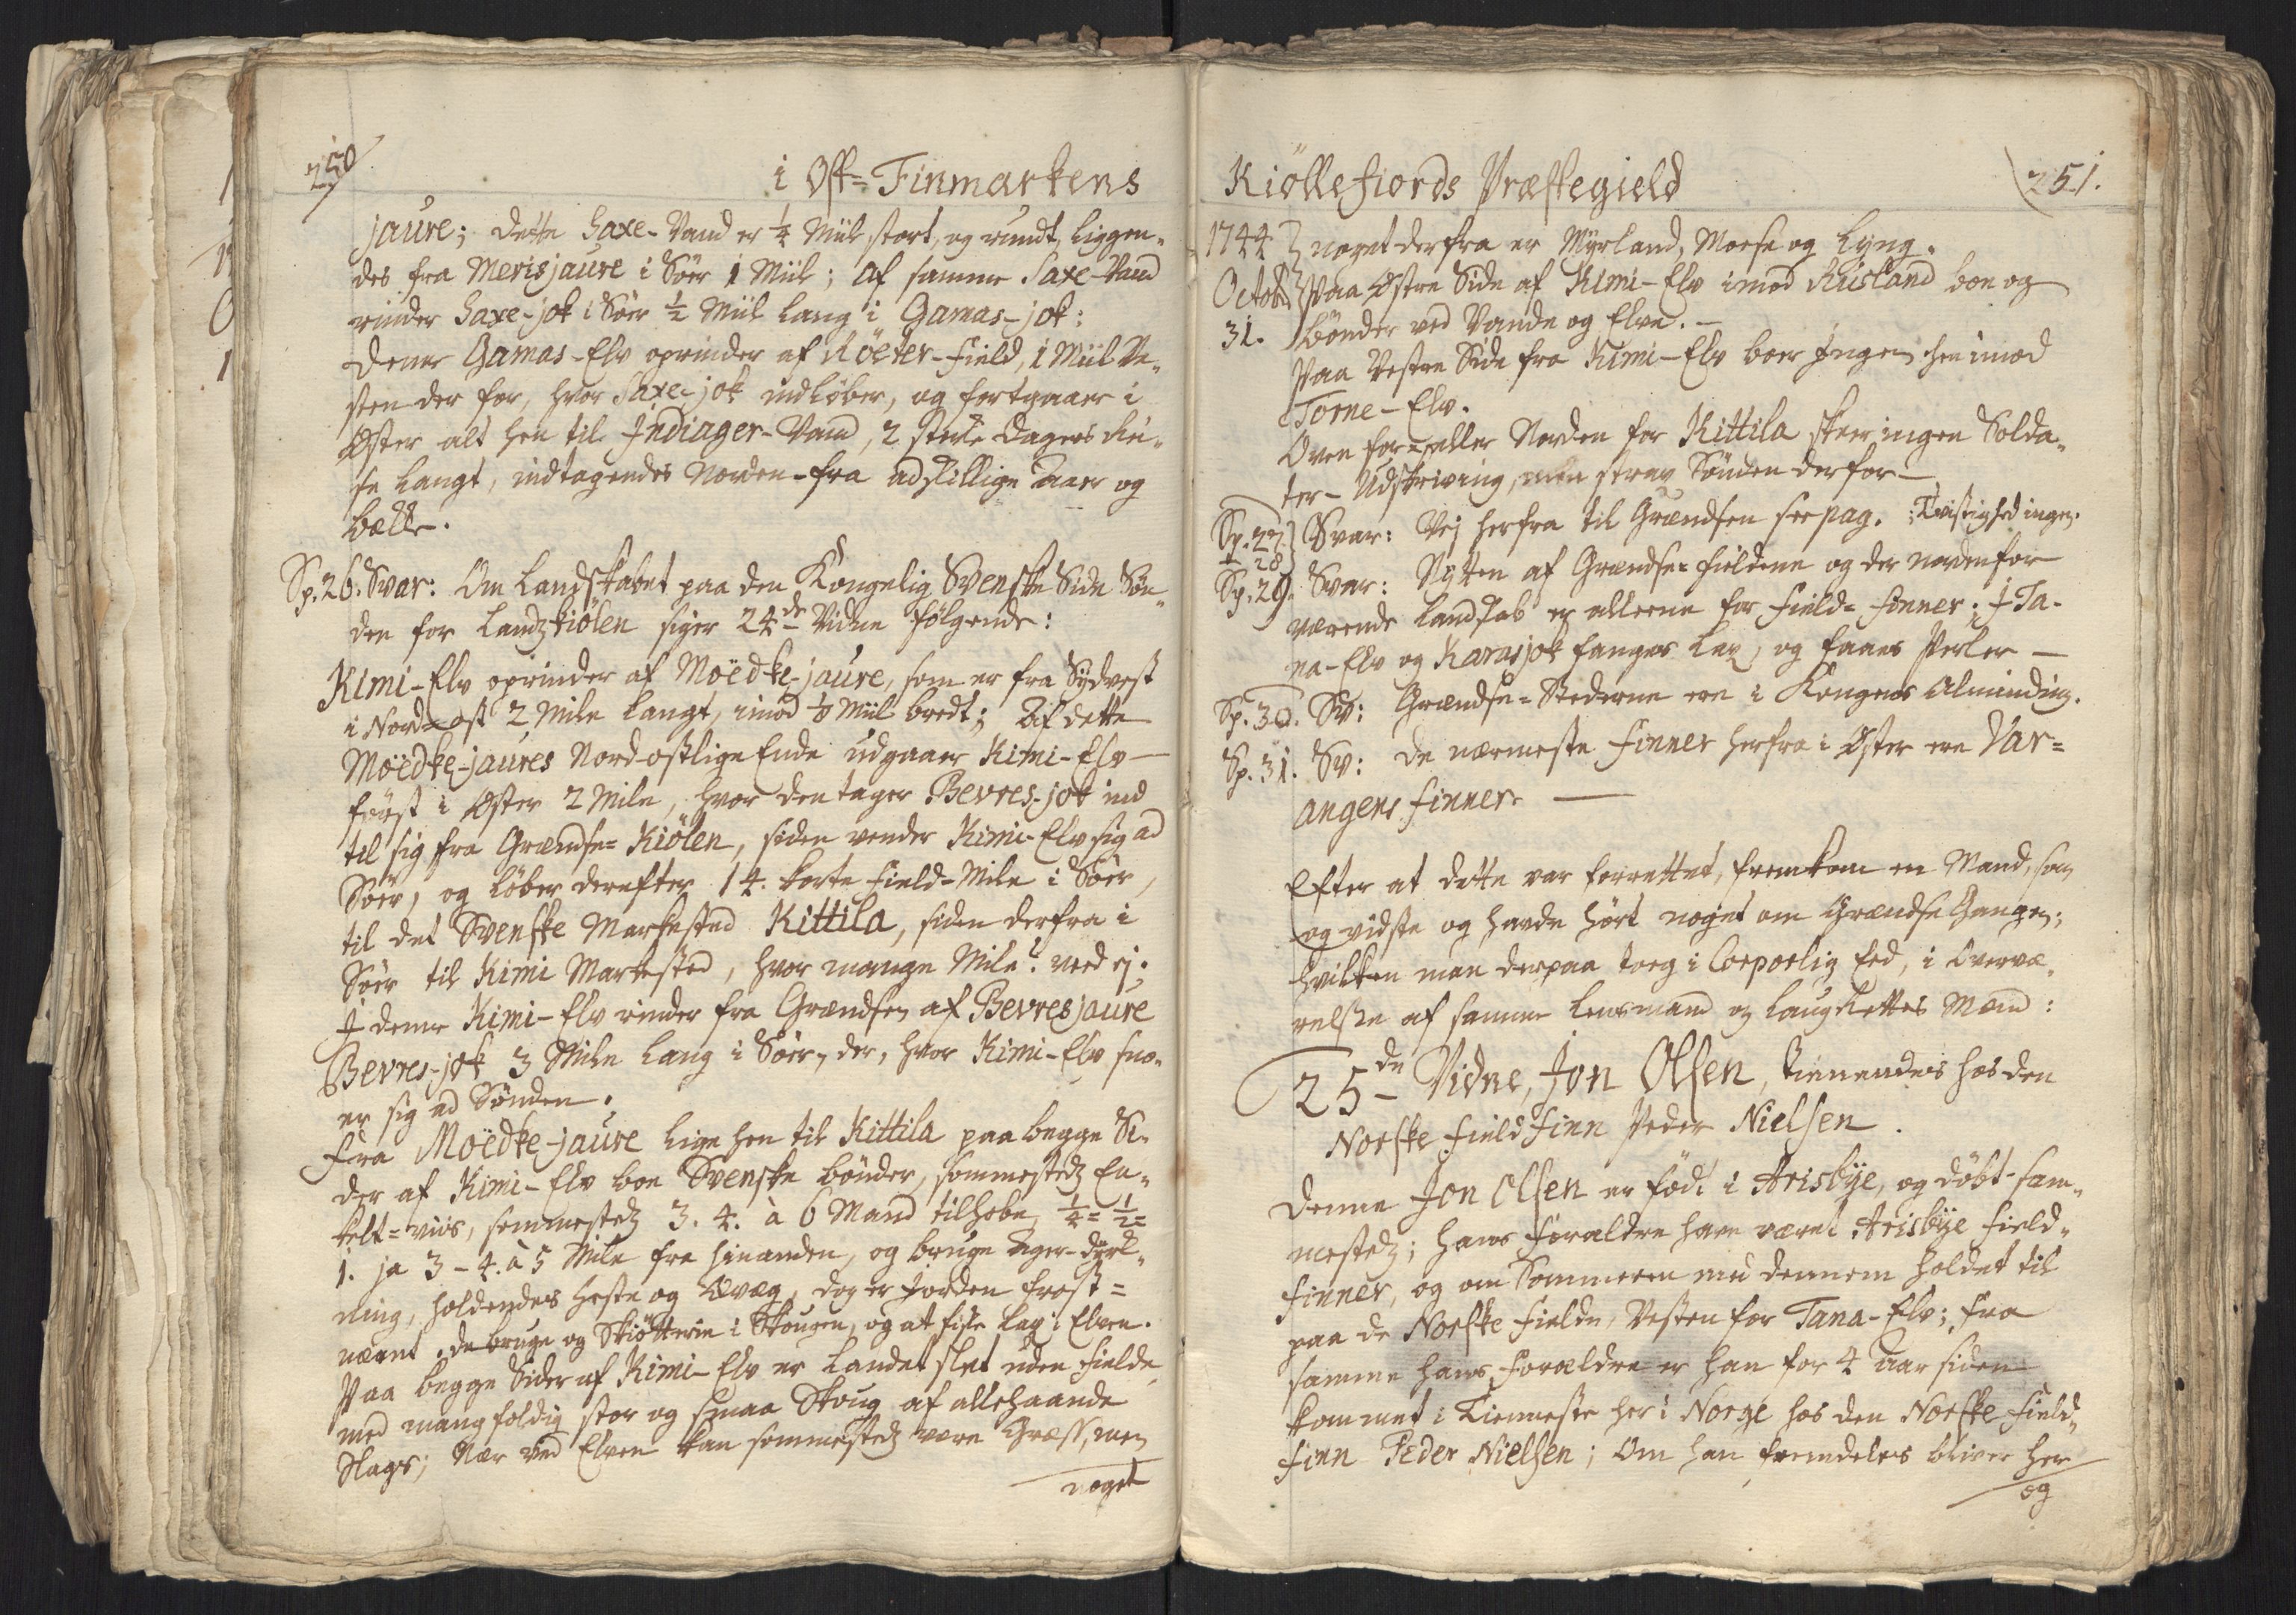 250
i Ost-Finmarkens
jaure; dette Saxe-Vand er 1/4 Miil stort, og rundt, liggen-
des fra Merisjaure i Sör 1 Miil; af samme Saxe-Vand
rinder Saxe-jok i Sör 1/2 Miil lang i Gamas-jok:
denne Gamas-Elv oprinder af Röeter-Field, 1 Miil Ve-
sten der for, hvor Saxe-jok indlöber, og fortgaaer i
Öster alt hen til Indiager-Vand, 2 sterke Dagers Rei-
se langt, indtagendes Norden-fra adskillige Aaer og
bække.
Sp. 26. Svar: Om Landskabet paa den Kongelig Svenske Side Sön-
den for Landzkiölen siger 24de Vidne fölgende:
Kimi-Elv oprinder af Moëdke-jaure, som er fra Sydvest
i Nord-ost 2 Mile langt, imod 1/8 Miil bredt; Af dette
Moëdke-jaures Nord-ostlige Ende udgaaer Kimi-Elv
först i Öster 2 Mile, hvor den tager Bevres-jok ind
til sig fra Grændse-Kiölen, siden vender Kimi-Elv sig ad
Sör, og löber derefter 14. korte Field-Mile i Sör,
til det Svenske Markested Kittila, siden derfra i
Sör til Kimi Markested, hvor mange Mile? veed ej.
I denne Kimi-Elv rinder fra Grændsen af Bevresjaure
Bevres-jok 3 Mile lang i Sör, der, hvor Kimi-Elv sno-
er sig ad Sönden.
Fra Moëdke-jaure lige hen til Kittila paa begge Si-
der af Kimi-Elv boe Svenske bönder, sommestedz En-
kelt-viis, sommestedz 3. 4. à 6 Mand tilhobe, 1/4= 1/2=
1. ja 3-4. à 5 Mile fra hinanden, og bruge Ager-dyrk-
ning, holdendes Heste og Qvæg, dog er Jorden frost=
næmt. de bruge og Skiötterie i Skougen, og at fiske Lax i Elven.
Paa begge Sider af Kimi-Elv er Landet slet uden Fielde
med mangfoldig stor og smaa Skoug af allehaande
Slags; Nær ved Elven kan sommestedz være Græss, men
noget
Kiöllefiords Præstegield
251.
1744 noget derfra er Myrland, Moese og Lyng.
Octobr Paa Östre Side af Kimi-Elv imod Rusland boe og
31. bönder ved Vande og Elve. -
Paa Vestre Side fra Kimi-Elv boer Ingen hen imod
Torne-Elv.
Oven for eller Norden for Kittila skeer ingen Solda-
ter-Udskrivning, men strax Sönden derfor -
Sp. 27 & 28 Svar: Vej herfra til Grændsen see pag. ; Tvistighed ingen.
Sp. 29. Svar: Nytten af Grændse-Fieldene og der nordenfor
værende Landskab er alleene for Field-Finner; I Ta-
na-Elv og Karasjok fanges Lax, og faaes Perler -
Sp. 30. Sv: Grændse-Stederne ere i Kongens Alminding.
Sp. 31. Sv: De nærmeste Finner herfra i Öster ere Var=
angens Finner. -
Efter at dette var forrettet, fremkom en Mand, som
og vidste og havde hört noget om Grændse Gangen;
hvilken man derpaa toeg i Corporlig Eed, i Overvæ-
relse af samme Lensmand og LaugRettes Mænd:
25de Vidne, Jon Olsen, tienendes hos den
Norske Field Finn Peder Nielsen.
Denne Jon Olsen er födt i Arisbye, og döbt sam-
mestedz; hans Forældre have været Arisbye Field-
Finner, og om Sommeren med dennem holdet til
paa de Norske Fielde, Vesten for Tana-Elv; fra
samme hans Forældre er han for 4 Aar siden
kommet i Tienneste her i Norge hos den Norske Field-
Finn Peder Nielsen; Om han fremdeles bliver her
og